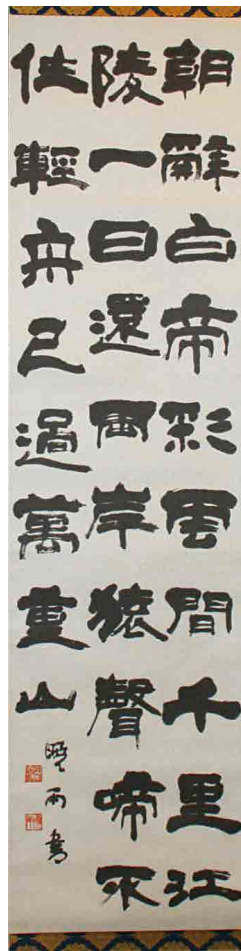 朝辭白帝彩雲間千里江
陵一日還兩岸猿聲啼不
住輕舟已過萬重山
雨書